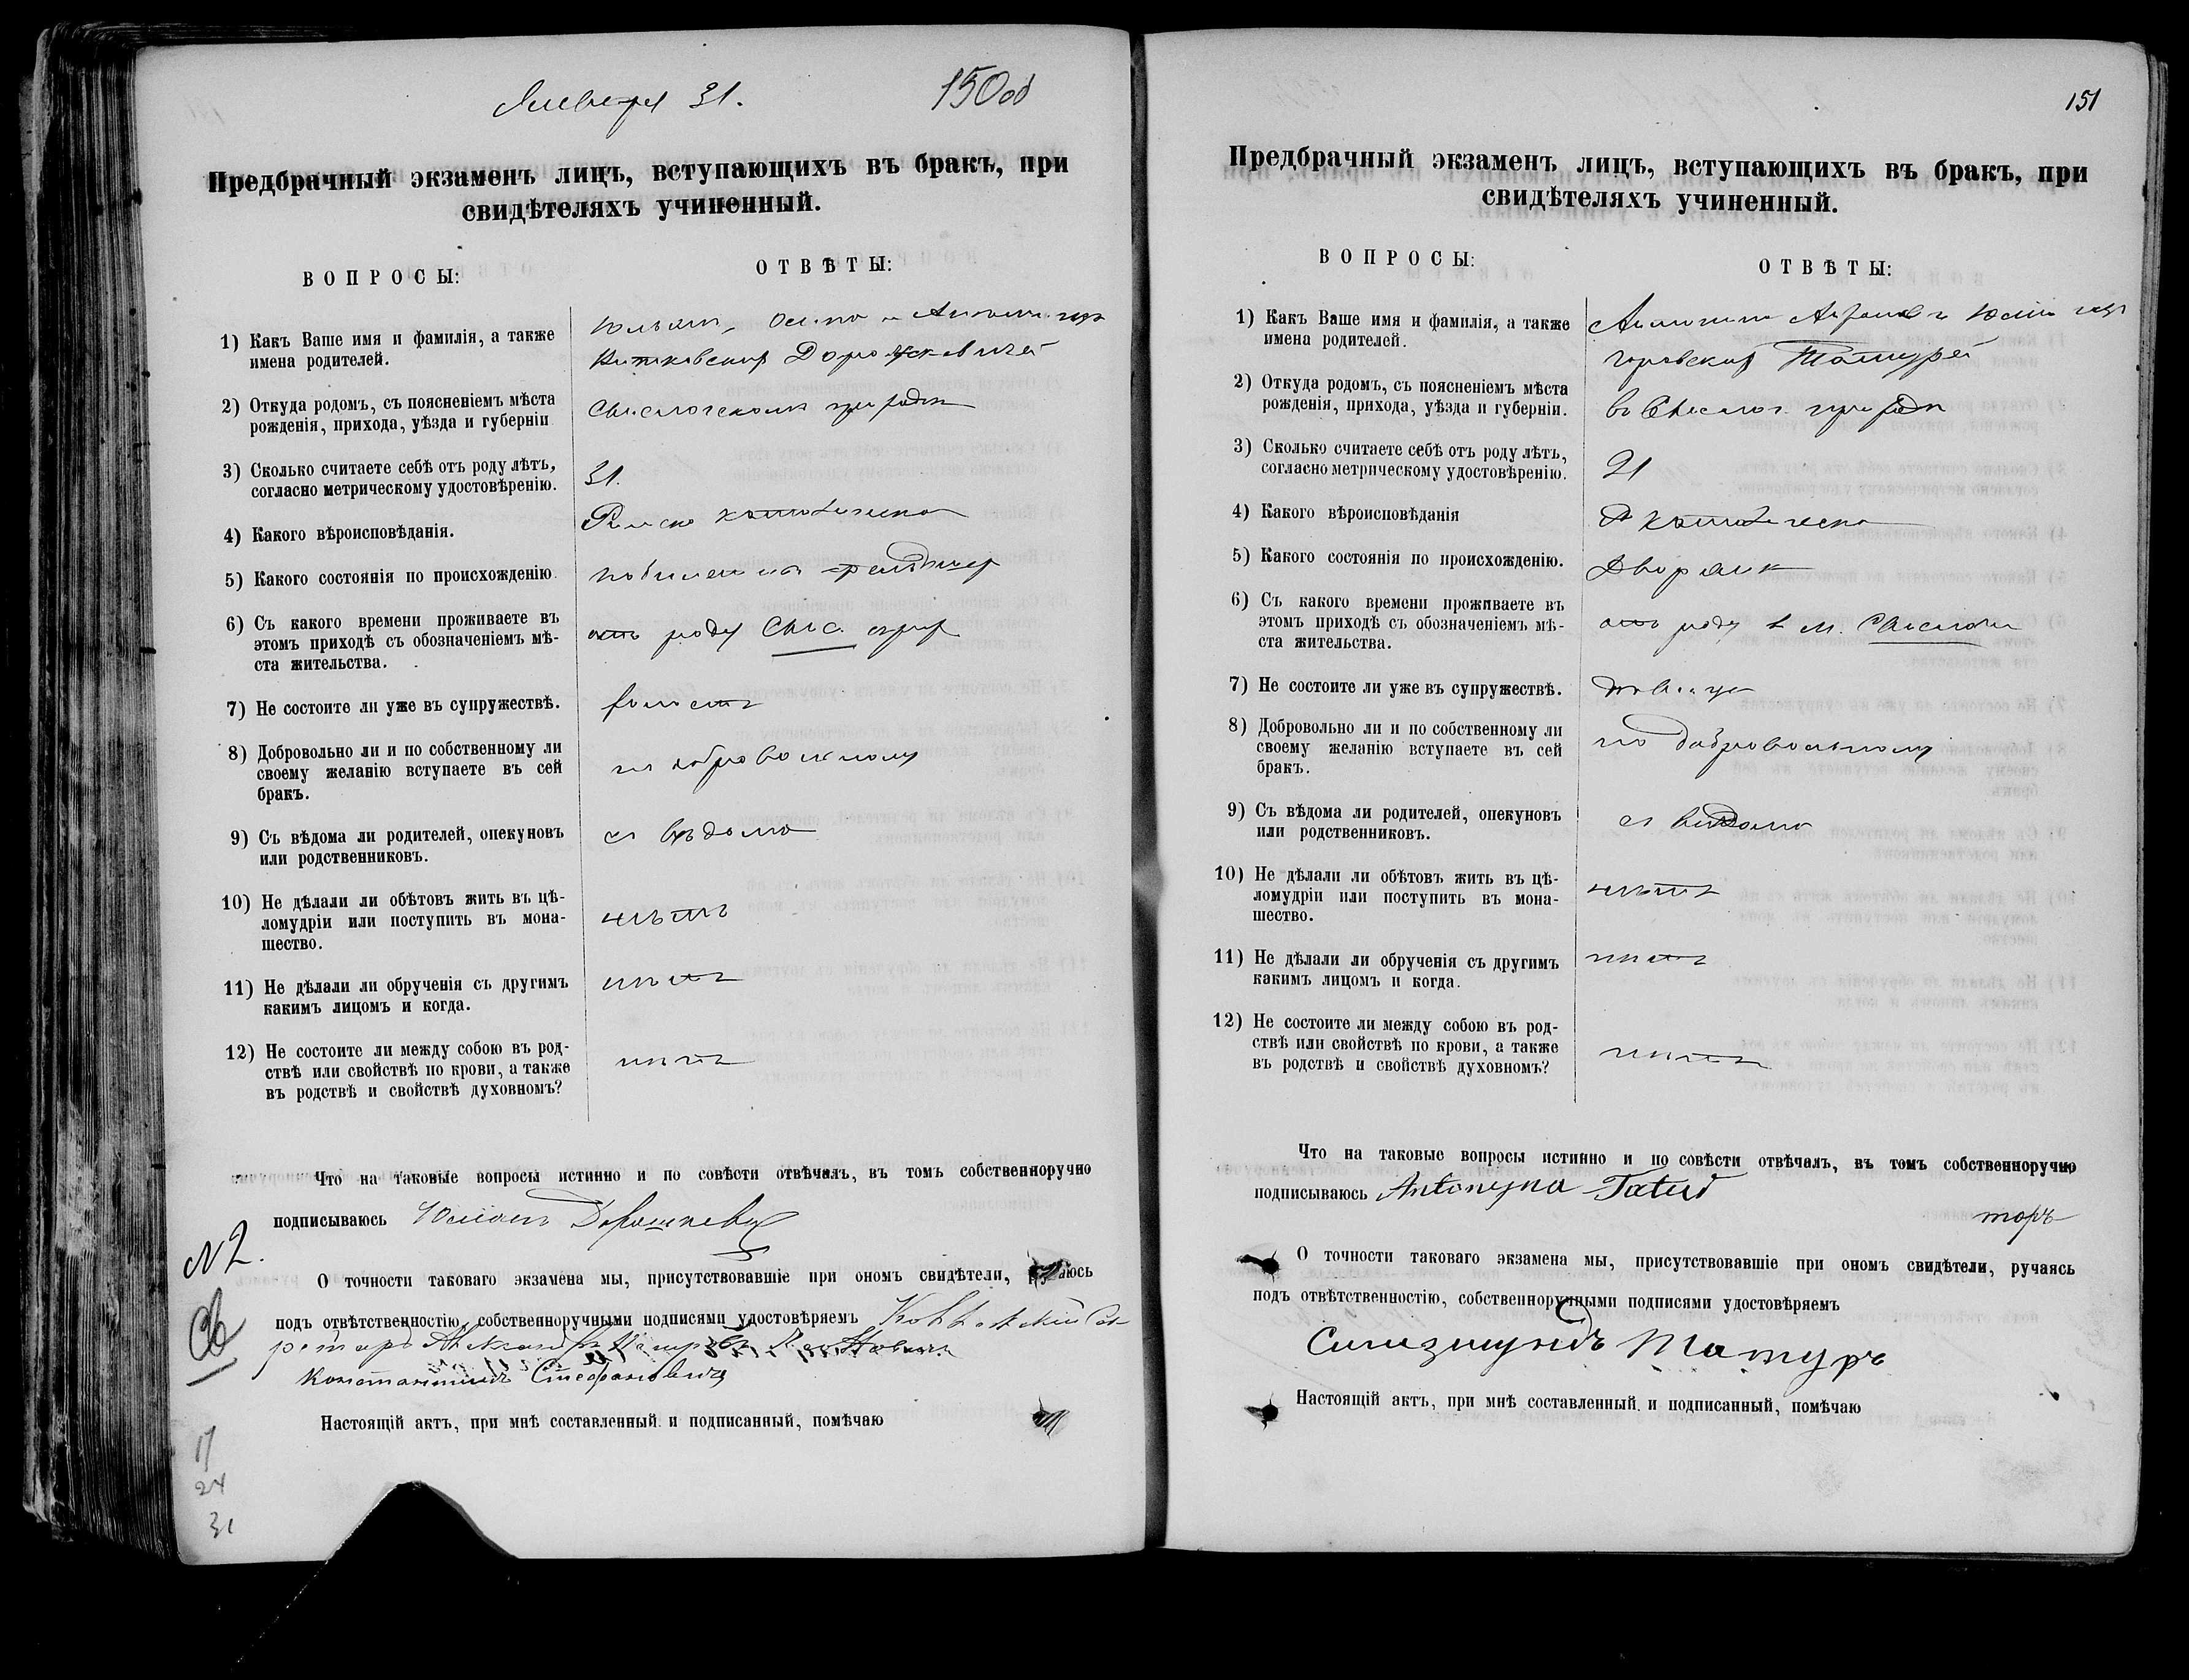 Января 31.
150об
Предбрачный экзаменъ лицъ, вступающихъ въ бракъ, при
свидѣтеляхъ учиненный.
ВОПРОСЫ:
ОТВѢТЫ:
1) Какъ Ваше имя и фамилія, а также
имена родителей.
2) Откуда родомъ, съ поясненіемъ мѣста
рожденія, прихода, уѣзда и губерніи
3) Сколько считаете себѣ отъ роду лѣтъ,
согласно метрическому удостовѣренію.
31.
4) Какого вѣроисповѣданія.
Римско католическа
5) Какого состоянія по происхожденію.
6) Съ какого времени проживаете въ
этомъ приходѣ съ обозначеніемъ мѣ-
ста жительства.
отъ роду Свис.
7) Не состоите ли уже въ супружествѣ.
холостъ
8) Добровольно ли и по собственному ли
своему желанію вступаете въ сей
бракъ.
по добровольному
9) Съ вѣдома ли родителей, опекуновъ
или родственниковъ.
съ вѣдома
10) Не дѣлали ли обѣтовъ жить въ цѣ-
ломудріи или поступить въ мона-
шество.
нѣтъ
11) Не дѣлали ли обрученія съ другимъ
какимъ лицомъ и когда.
нѣтъ
12) Не состоите ли между собою въ род-
ствѣ или свойствѣ по крови, а также
въ родствѣ и свойствѣ духовномъ?
нѣтъ
Что на таковые вопросы истинно и по совѣсти отвѣчалъ, въ томъ собственноручно
подписываюсь Юліанъ
N 2.
О точности таковаго экзамена мы, присутствовавшіе при ономъ свидѣтели, ручаюсь
подъ отвѣтственностію, собственноручными подписями удостовѣряемъ
Константинъ Стефановичъ
Настоящій актъ, при мнѣ составленный и подписанный, помѣчаю
17
24
31
151
Предбрачный экзаменъ лицъ, вступающихъ въ бракъ, при
свидѣтеляхъ учиненный.
ВОПРОСЫ:
ОТВѢТЫ:
1) Какъ Ваше имя и фамилія, а также
имена родителей.
2) Откуда родомъ, съ поясненіемъ мѣста
рожденія, прихода, уѣзда и губерніи.
3) Сколько считаете себѣ отъ роду лѣтъ,
согласно метрическому удостовѣренію.
21
4) Какого вѣроисповѣданія
Р католическа
5) Какого состоянія по происхожденію.
Дворянк
6) Съ какого времени проживаете въ
этомъ приходѣ съ обозначеніемъ мѣ-
ста жительства.
отъ роду в м.
7) Не состоите ли уже въ супружествѣ.
дѣвица
8) Добровольно ли и по собственному ли
своему желанію вступаете въ сей
бракъ.
по добровольному
9) Съ вѣдома ли родителей, опекуновъ
или родственниковъ.
съ вѣдома
10) Не дѣлали ли обѣтовъ жить въ цѣ-
ломудріи или поступить въ мона-
шество.
нѣтъ
11) Не дѣлали ли обрученія съ другимъ
какимъ лицомъ и когда.
нѣтъ
12) Не состоите ли между собою въ род-
ствѣ или свойствѣ по крови, а также
въ родствѣ и свойствѣ духовномъ?
нѣтъ
Что на таковые вопросы истинно и по совѣсти отвѣчалъ, въ томъ собственноручно
подписываюсь Antonyna
О точности таковаго экзамена мы, присутствовавшіе при ономъ свидѣтели, ручаясь
подъ отвѣтственностію, собственноручными подписями удостовѣряемъ
Сигизмундъ Татуръ
Настоящій актъ, при мнѣ составленный и подписанный, помѣчаю